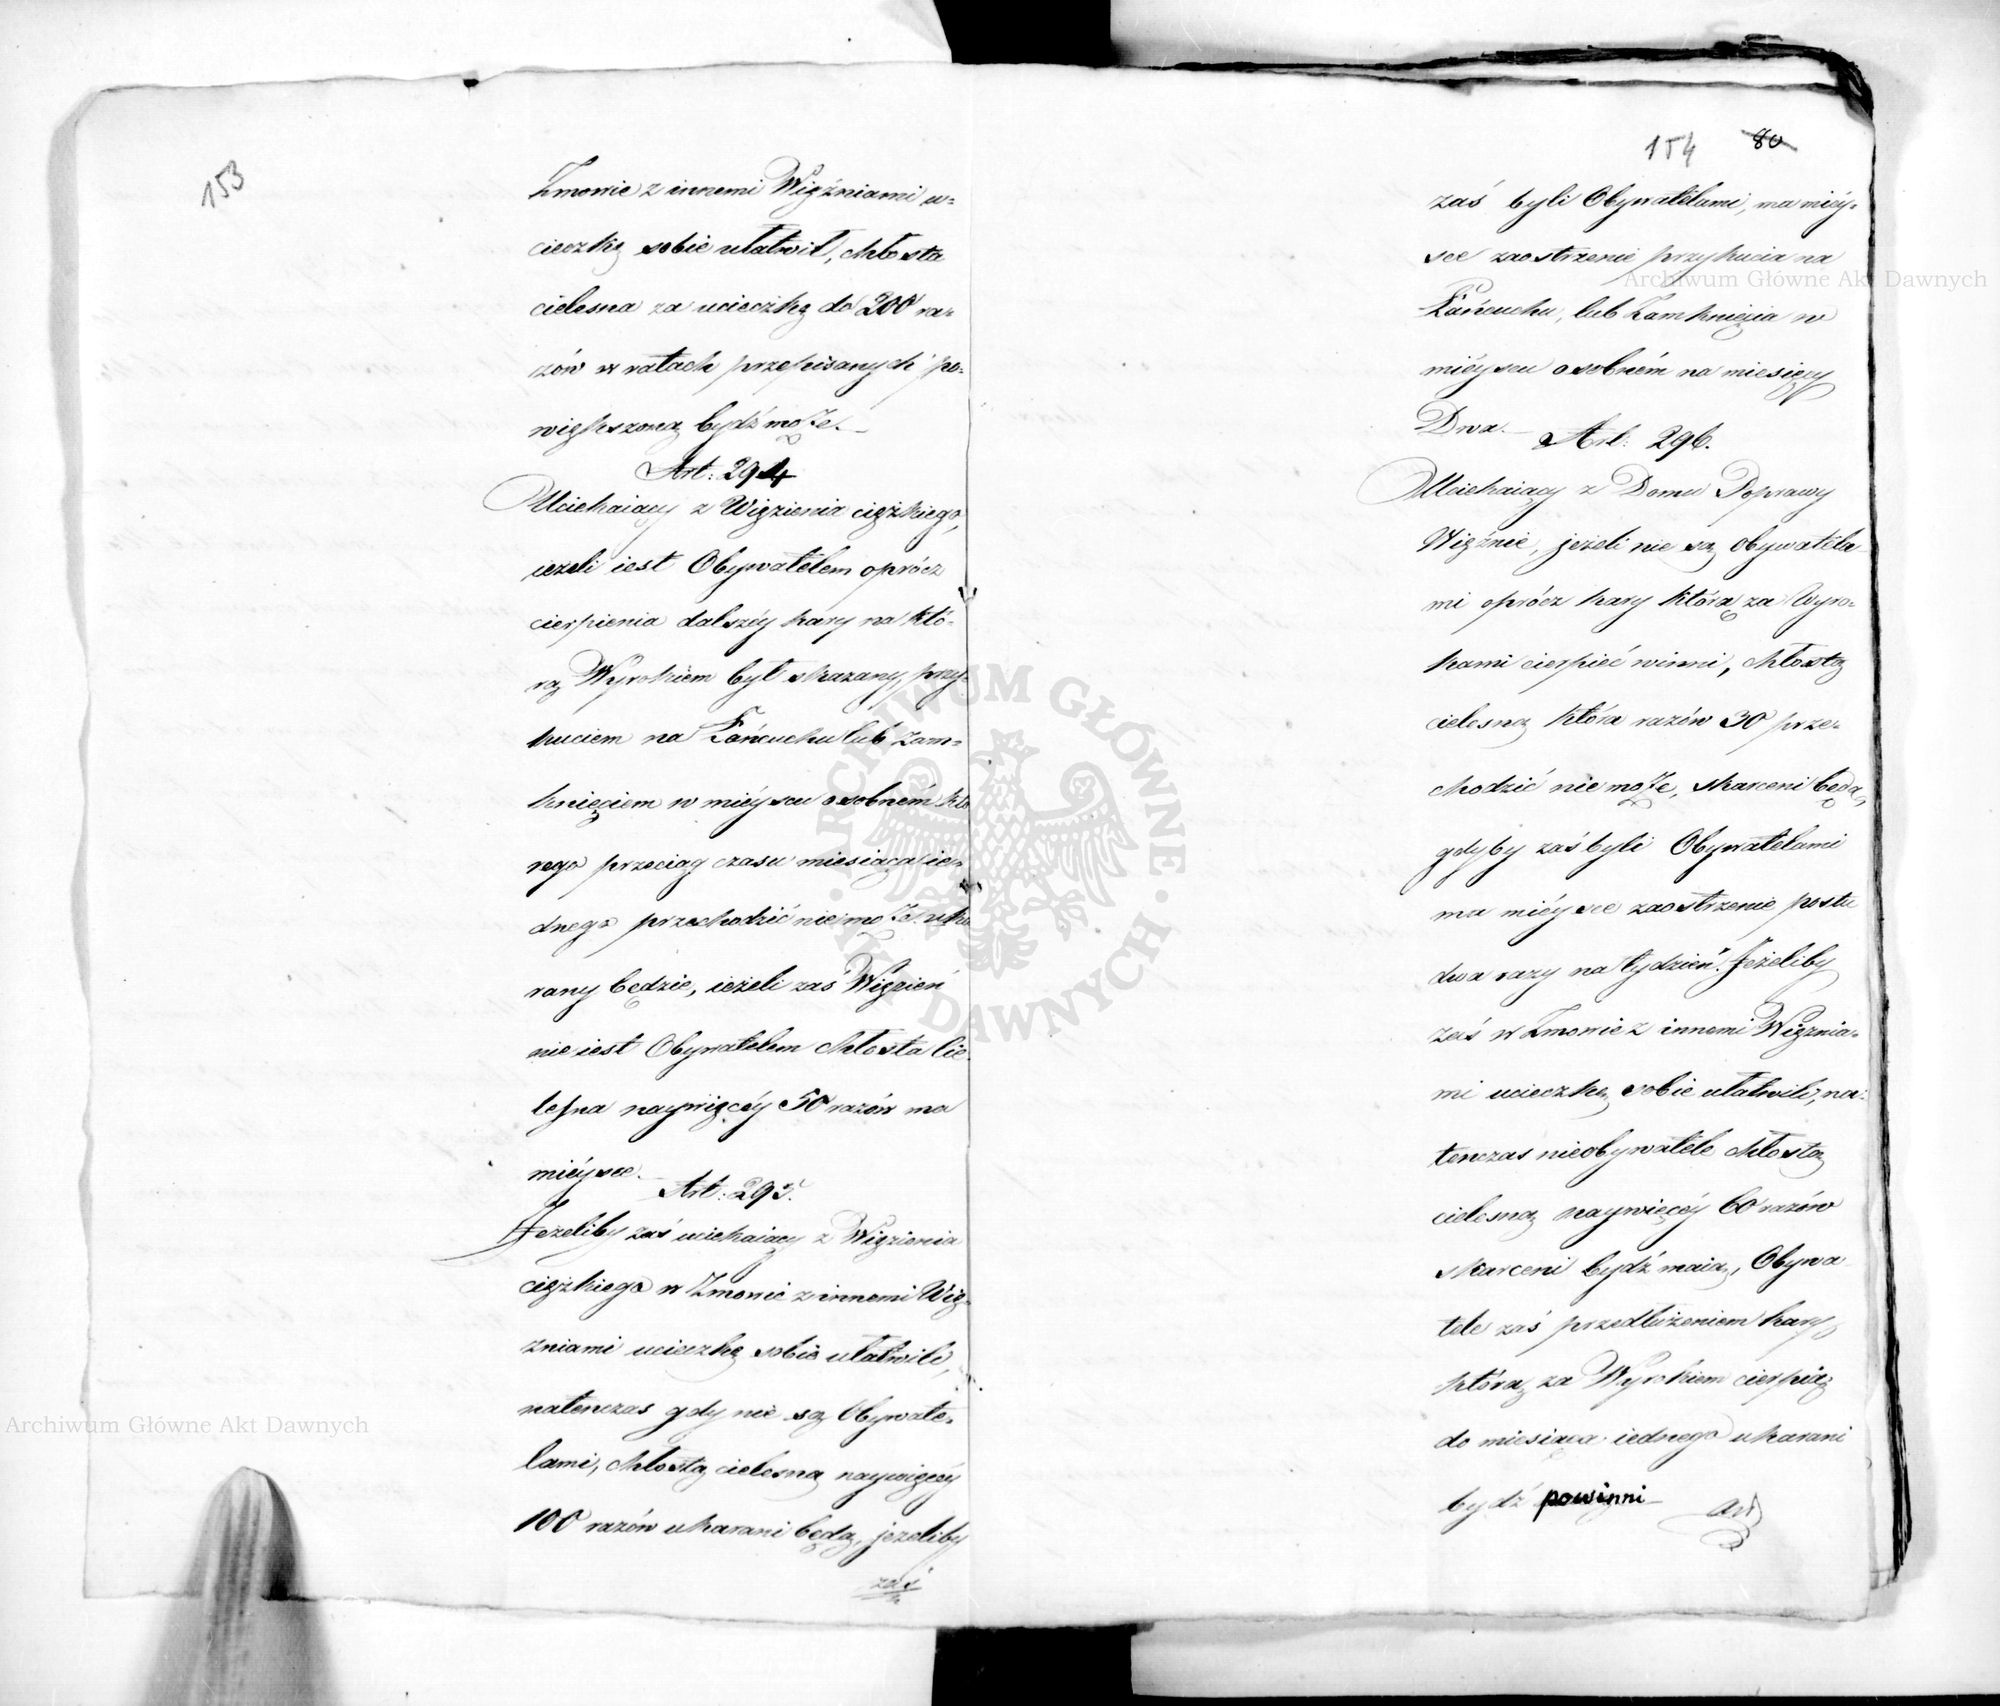 153
Zmowie z innemi Więźniami u-
cieczkę sobie ułatwił, chłosta
cielesna za ucieczkę do 200 ra-
zów w ratach przepisanych po-
większoną bydź może.
Art: 294
Uciekaiący z Więzienia ciężkiego,
ieżeli iest Obywatelem oprócz
cierpienia dalszéy kary na któ-
rą Wyrokiem był skazany, przy-
kuciem na Łańcuchu lub zam-
knięciem w miéyscu osobném któ
rego przeciąg czasu miesiąca ie-
dnego przechodzić nie może uka
rany będzie, ieżeli zaś Więzień
nie iest Obywatelem chłosta cie
lesna naywięcéy 50 razów ma
miéysce.
Art: 295.
Jeżeliby zaś uciekaiący z Więzienia
ciężkiego w Zmowie z innemi Wię-
źniami ucieczkę sobie ułatwili,
natenczas gdy nie są Obywate-
lami, chłostą cielesną naywięcéy
100 razów ukarani będą, jeżeliby
zaś
154 80
zaś byli Obywatelami, ma miéy-
sce zaostrzenie przykucia na
Łańcuchu, lub Zamknięcia w
miéyscu osobném na miesięcy
Dwa.
Art: 296.
Uciekaiący z Domu Poprawy
Więźnie, jeżeli nie są obywatela
mi oprócz kary którą za Wyro-
kami cierpieć winni, chłostą
cielesną która razów 30 prze-
chodzić nie może, skarceni będą,
gdyby zaś byli Obywatelami
ma miéysce zaostrzenie postu
dwa razy na tydzień. Jeżeliby
zaś w Zmowie z innemi Więźnia-
mi ucieczkę sobie ułatwili, na-
tenczas nieobywatele chłostą
cielesną naywięcéy 60 razów
skarceni bydź maią, Obywa
tele zaś przedłużeniem kary
którą za Wyrokiem cierpią
do miesiąca iednego ukarani
bydź powinni
Art
Archiwum Główne Akt Dawnych
Archiwum Główne Akt Dawnych
ARCHIWUM GŁÓWNE AKT DAWNYCH